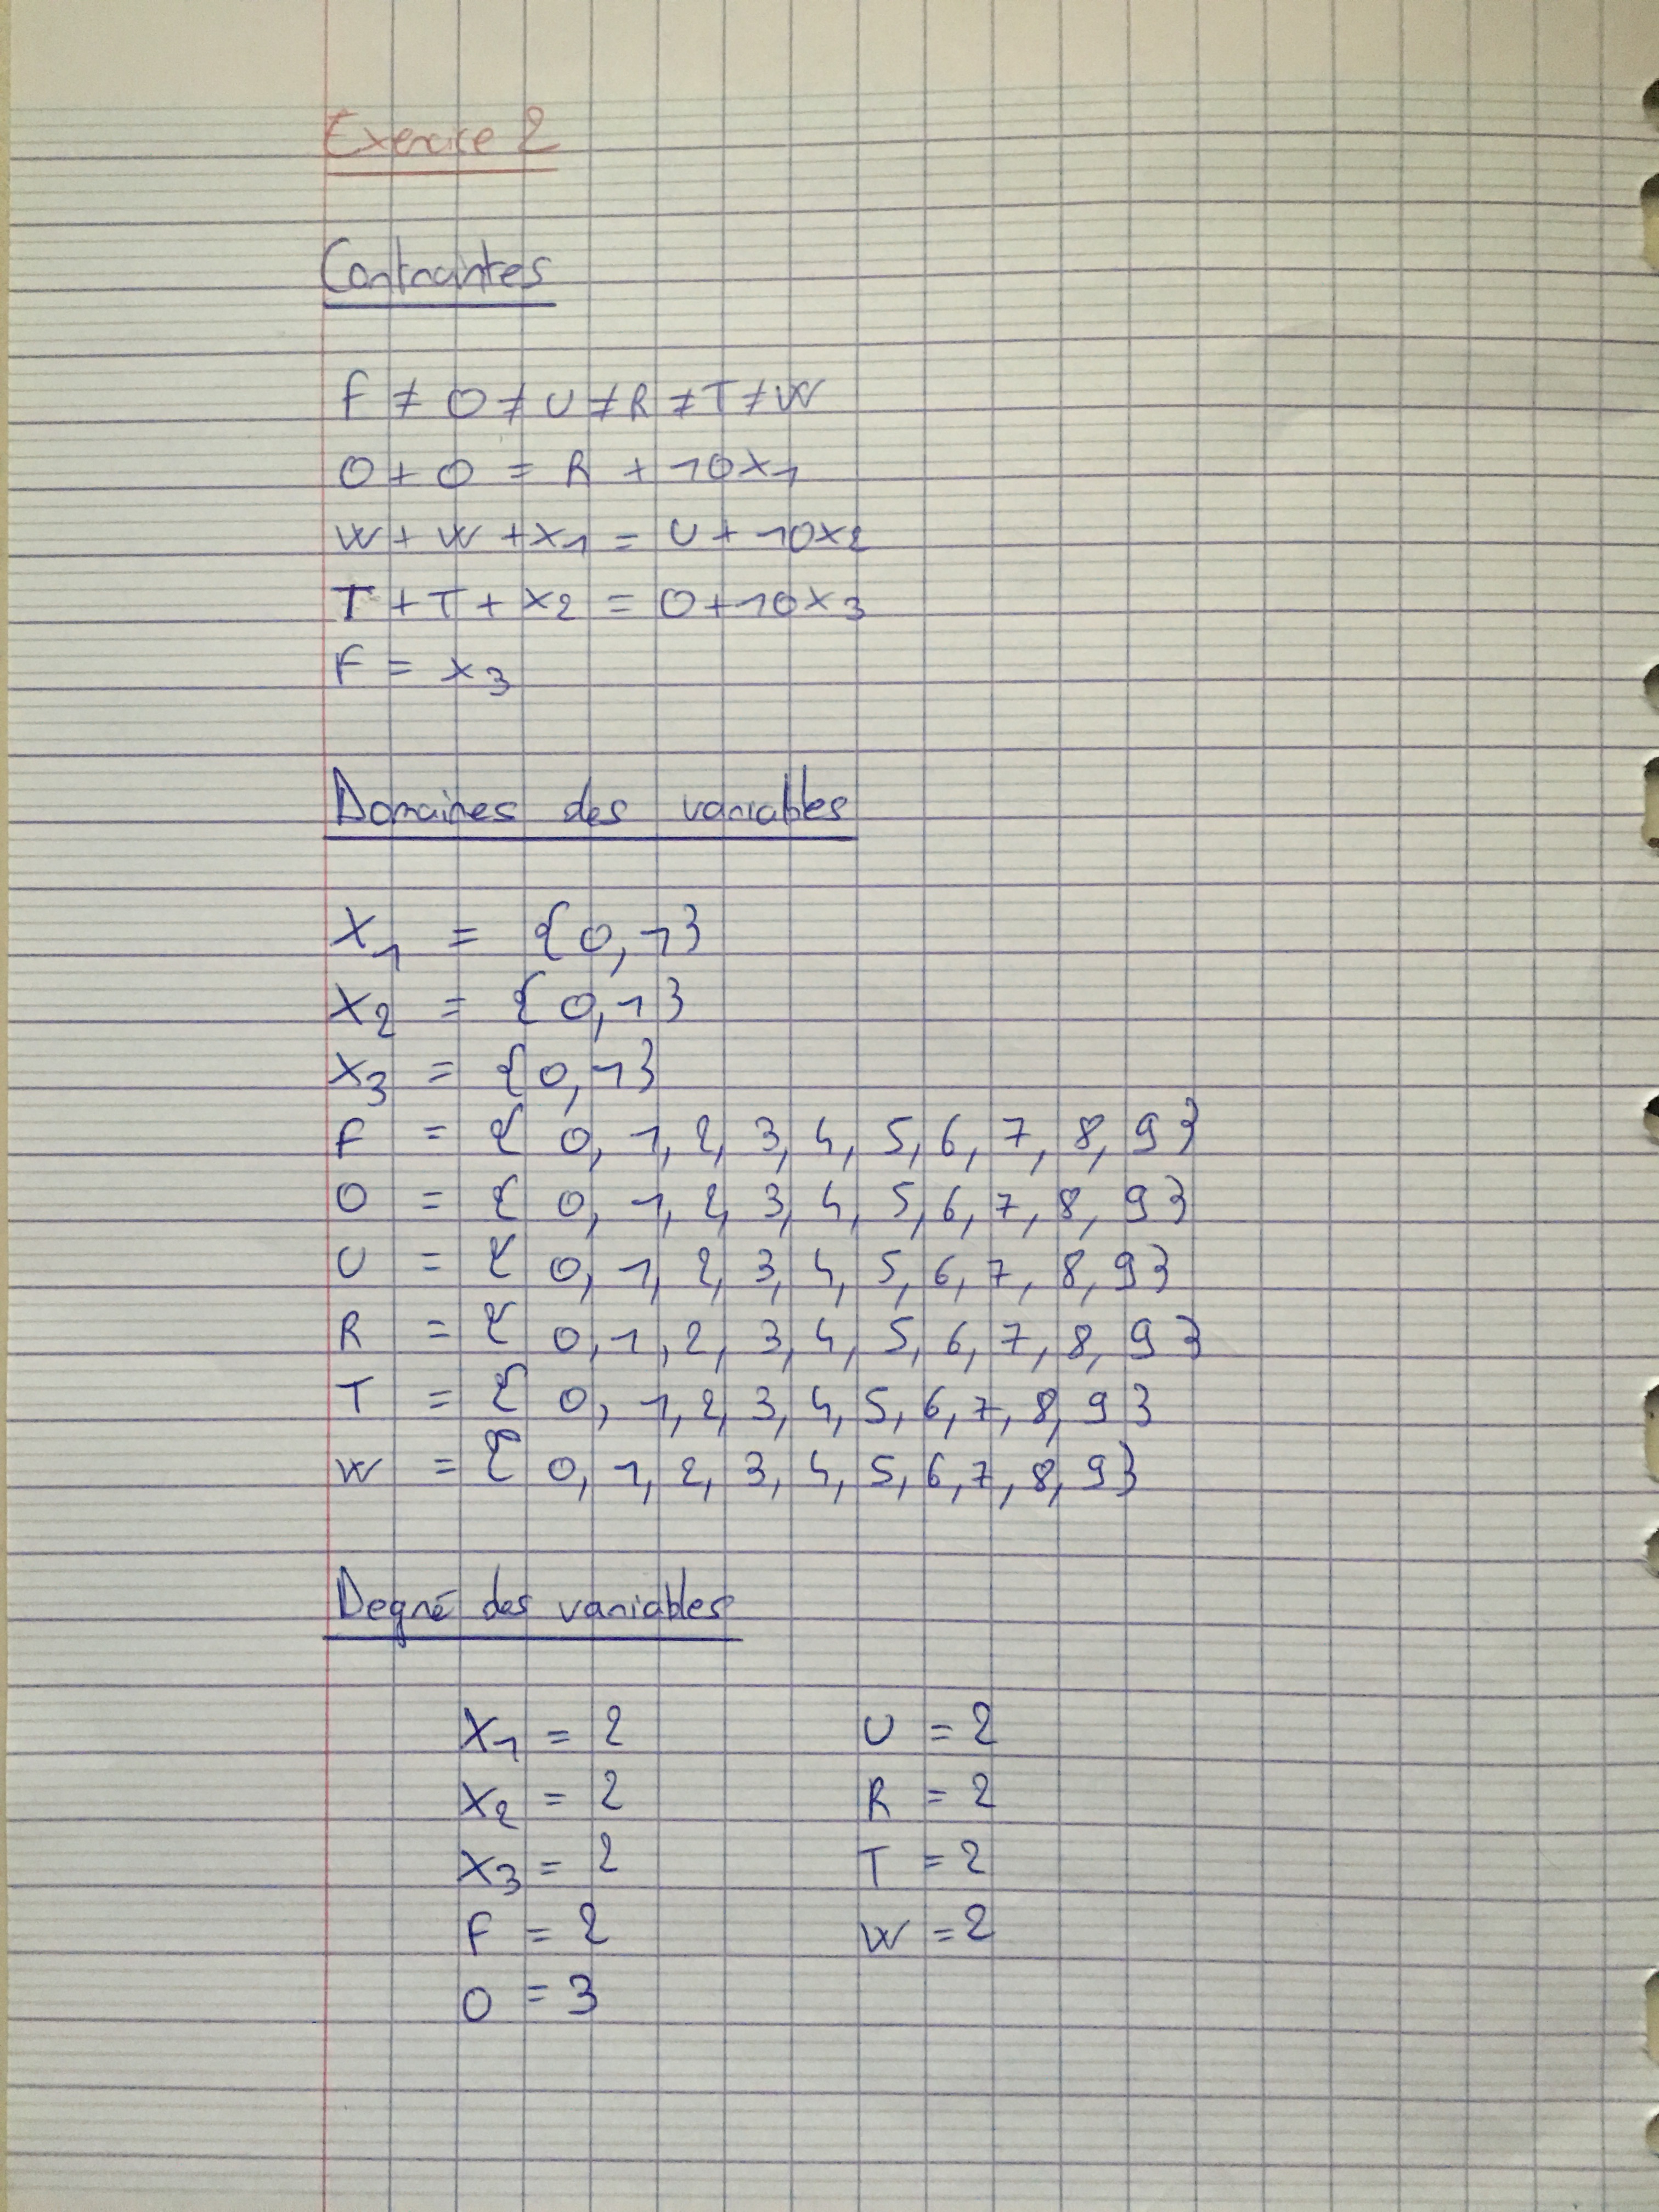 Exercice 2
Contraintes
F ≠ O ≠ U ≠ R ≠ T ≠ W
O + O = R + 10X1
W + W + X1 = U + 10X2
T + T + X2 = O + 10X3
F = X3
Domaines des variables
X1 = {0, 1}
X2 = {0, 1}
X3 = {0, 1}
F = { 0, 1, 2, 3, 4, 5, 6, 7, 8, 9 }
O = { 0, 1, 2, 3, 4, 5, 6, 7, 8, 9 }
U = { 0, 1, 2, 3, 4, 5, 6, 7, 8, 9 }
R = { 0, 1, 2, 3, 4, 5, 6, 7, 8, 9 }
T = { 0, 1, 2, 3, 4, 5, 6, 7, 8, 9 }
W = { 0, 1, 2, 3, 4, 5, 6, 7, 8, 9 }
Degré des variables
X1 = 2 U = 2
X2 = 2 R = 2
X3 = 2 T = 2
F = 2 W = 2
O = 3